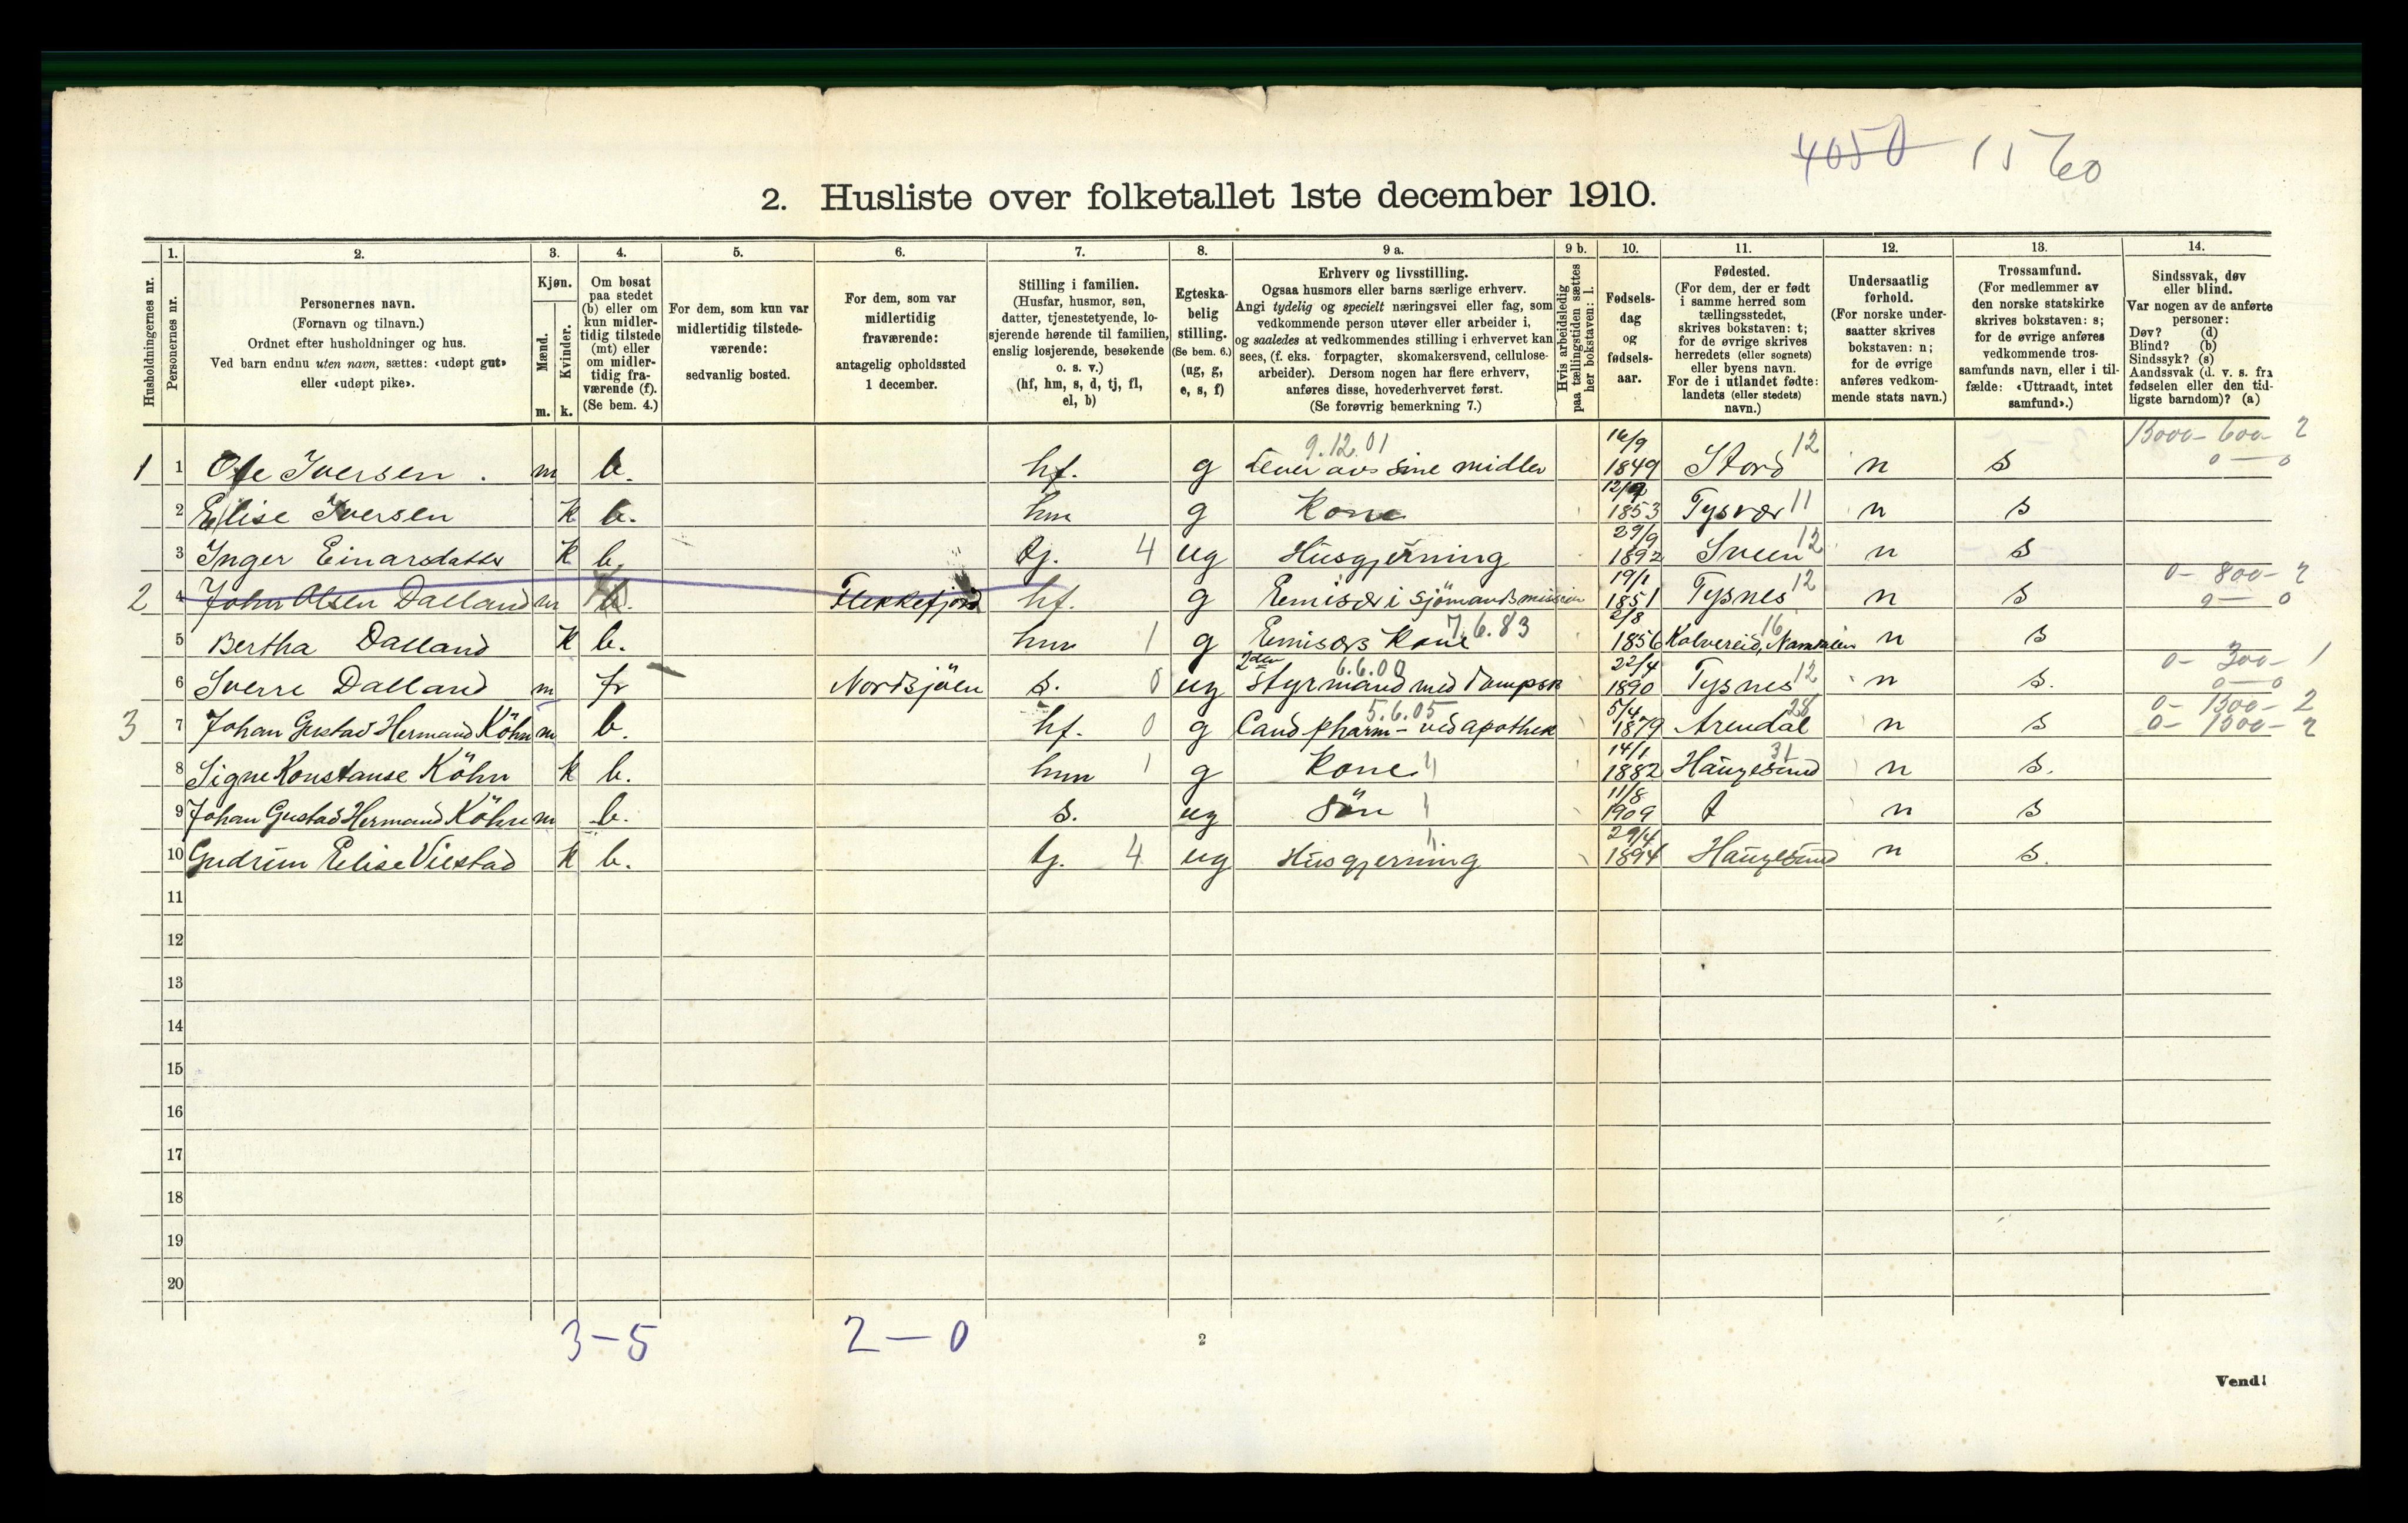 4050 1560
2. Husliste over folketallet 1ste december 1910.
1. 2. 3. 4. 5. 6. 7. 8. 9 a. 9 b. 10. 11. 12. 13. 14.
Husholdningernes nr.
Personernes nr.
Personernes navn.
(Fornavn og tilnavn.)
Ordnet efter husholdninger og hus.
Ved barn endnu uten navn, sættes: «udøpt gut»
eller «udøpt pike».
Kjøn.
Mænd.
Kvinder.
m. k.
Om bosat
paa stedet
(b) eller om
kun midler-
tidig tilstede
(mt) eller
om midler-
tidig fra-
værende (f).
(Se bem. 4.)
For dem, som kun var
midlertidig tilstede-
værende:
sedvanlig bosted.
For dem, som var
midlertidig
fraværende:
antagelig opholdssted
1 december.
Stilling i familien.
(Husfar, husmor, søn,
datter, tjenestetyende, lo-
sjerende hørende til familien,
enslig losjerende, besøkende
o. s. v.)
(hf, hm, s, d, tj, fl,
el, b)
Egteska-
belig
stilling.
(Se bem. 6.)
(ug, g,
e, s, f)
Erhverv og livsstilling.
Ogsaa husmors eller barns særlige erhverv.
Angi tydelig og specielt næringsvei eller fag, som
vedkommende person utøver eller arbeider i,
og saaledes at vedkommendes stilling i erhvervet kan
sees, (f. eks. forpagter, skomakersvend, cellulose-
arbeider). Dersom nogen har flere erhverv,
anføres disse, hovederhvervet først.
(Se forøvrig bemerkning 7.)
Hvis arbeidsledig
paa tællingstiden sættes
her bokstaven: l.
Fødsels-
dag
og
fødsels-
aar.
Fødested.
(For dem, der er født
i samme herred som
tællingsstedet,
skrives bokstaven: t;
for de øvrige skrives
herredets (eller sognets)
eller byens navn.
For de i utlandet fødte:
landets (eller stedets)
navn.)
Undersaatlig
forhold.
(For norske under-
saatter skrives
bokstaven: n;
for de øvrige
anføres vedkom-
mende stats navn.)
Trossamfund.
(For medlemmer av
den norske statskirke
skrives bokstaven: s;
for de øvrige anføres
vedkommende tros-
samfunds navn, eller i til-
fælde: «Uttraadt, intet
samfund».)
Sindssvak, døv
eller blind.
Var nogen av de anførte
personer:
Døv? (d)
Blind? (b)
Sindssyk? (s)
Aandssvak (d. v. s. fra
fødselen eller den tid-
ligste barndom)? (a)
9.12.01 16/9 12 15000- 600- 2
1 1 Ole Iversen. m b. hf. g Lever avs sine midler 1849 Stord n s 0 — 0
2 Elise Iversen k b. hm g Kone 12/9 1853 Tysvær 11 n s
3 Inger Einarsdatter k b. tj. 4 ug Husgjerning 29/9 1892 Sveen 12 n s
2 4 John Olsen Dalland m b. Flekkefjord hf. g Emisær i sjömandsmission 19/1 1851 Tysnes 12 n s 0- 800- 2 0 — 0
5 Bertha Dalland k b. hm 1 g Emisærs Kone 7.6.83 2/8 1856 Kolvereid, Namdalen 16 n s
6 Sverre Dalland m fr Nordsjöen s. 0 ug 2den Styrmand med Dampsk 6.6.00 22/4 1890 Tysnes 12 n s. 0- 300- 1 0 — 0
3 7 Johan Gustav Hermand Köhn m b. hf. 0 g Cand pharm - ved apothek 5.6.05 5/4 1879 Arendal 28 n s 0- 1500- 2 0- 1500- 2
8 Signe Konstanse Köhn k b. hm 1 g Kone 14/1 1882 Haugesund 31 n s.
9 Johan Gustav Hermand Köhn m b. s. ug Sön 11/8 1909 t n s
10 Gudrun Elise Viestad k b. tj. 4 ug Husgjerning 29/4 1894 Haugesund n s.
11
12
13
14
15
16
17
18
19
20
3-5 2-0 2
Vend!